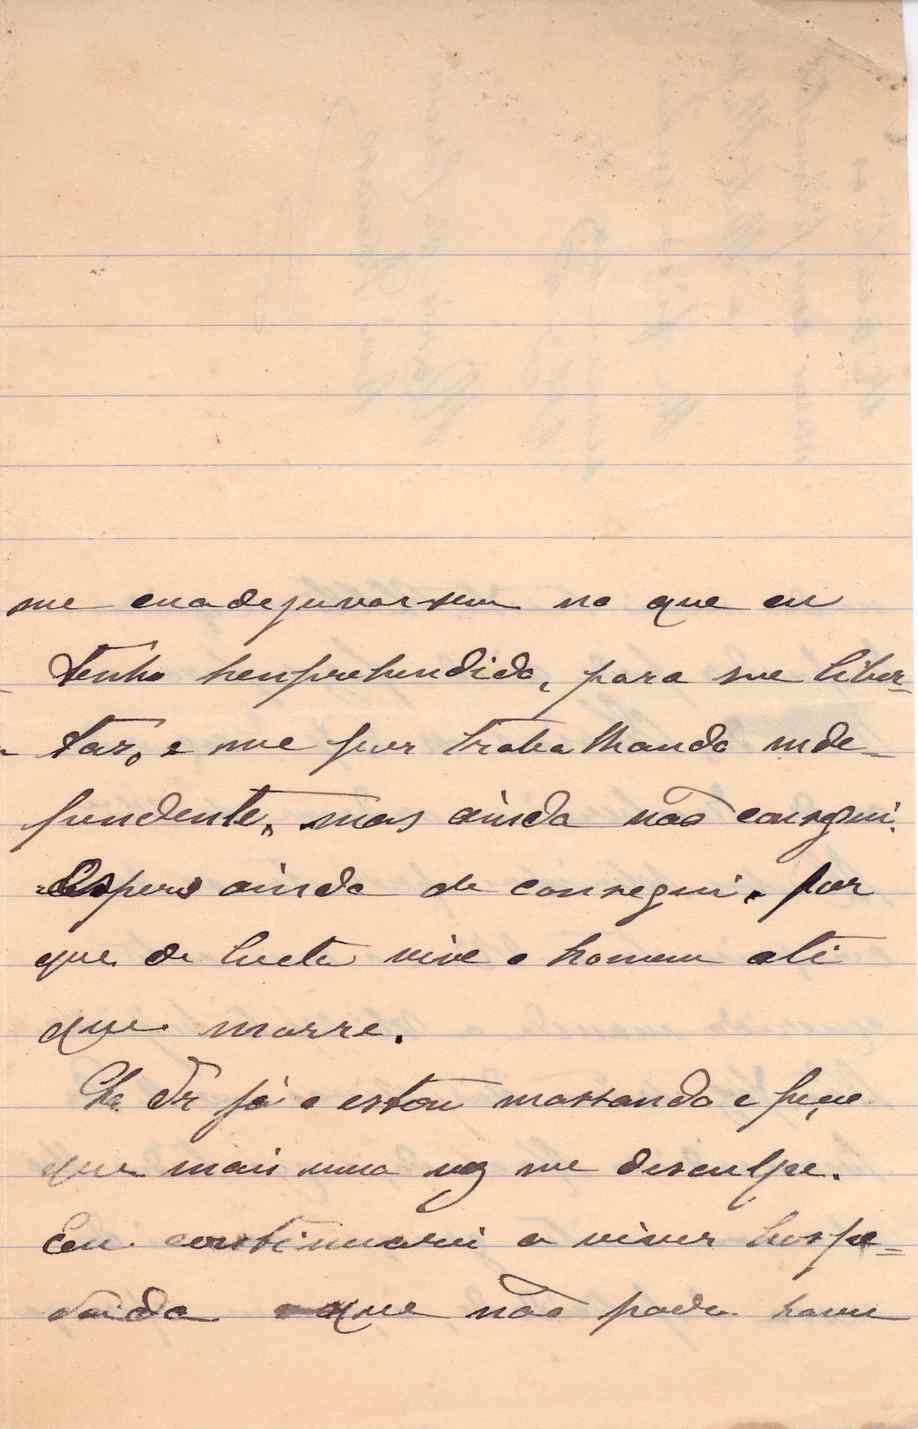 me
no que eu
tenho hemprehendido, para me liber-
tar, e me por trabalhando inde-
pendente, mas ainda não consegui.
Espero ainda de consegui. por
que de lucta vive o homem ate
que morre.
Dr já o estou massando e peço
que mais uma vez me desculpe.
Eu continuarei a viver
que não pode haver